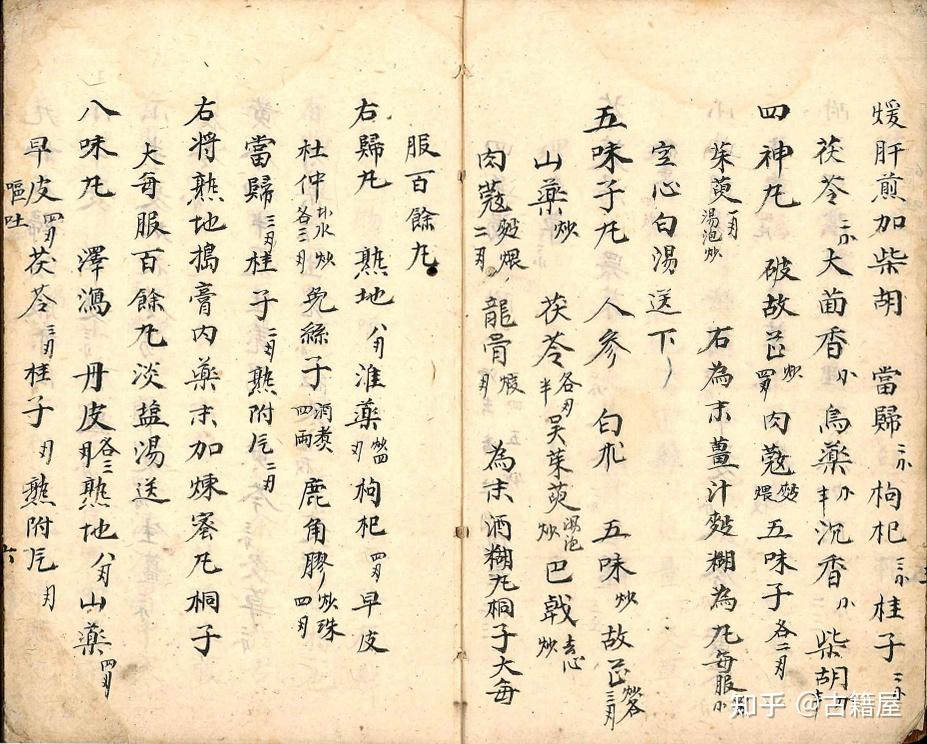 煖肝煎加柴胡 當歸二小 枸杞三小 桂子二小
茯苓二小 大茴香小 烏藥小 沉香小 柴胡
四神丸 破故芷炒四兩 肉蔻麩煨 五味子各二兩
茱萸一兩湯泡炒 右為末薑汁麩糊為丸每服
空心白湯送下
五味子丸 人參 白朮 五味炒 故芷炒各三兩
山藥炒 茯苓各兩半 吴茱萸湯泡炒 巴戟去心炒
肉蔻麩煨二兩 龍骨煅兩 為末酒糊丸桐子大每
服百餘丸
右歸丸 熟地八兩 淮藥炒四兩 枸杞四兩 早皮
杜仲水炒各三兩 兔絲子酒煑四兩 鹿角膠炒珠四兩
當歸三兩 桂子二兩 熟附片二兩
右将熟地搗膏内藥末加煉蜜丸桐子
大每服百餘丸淡盐湯送
八味丸 澤瀉 丹皮各三兩 熟地八兩 山藥四兩
早皮四兩 茯苓三兩 桂子兩 熟附片兩
嘔吐
六
知乎 @古籍屋